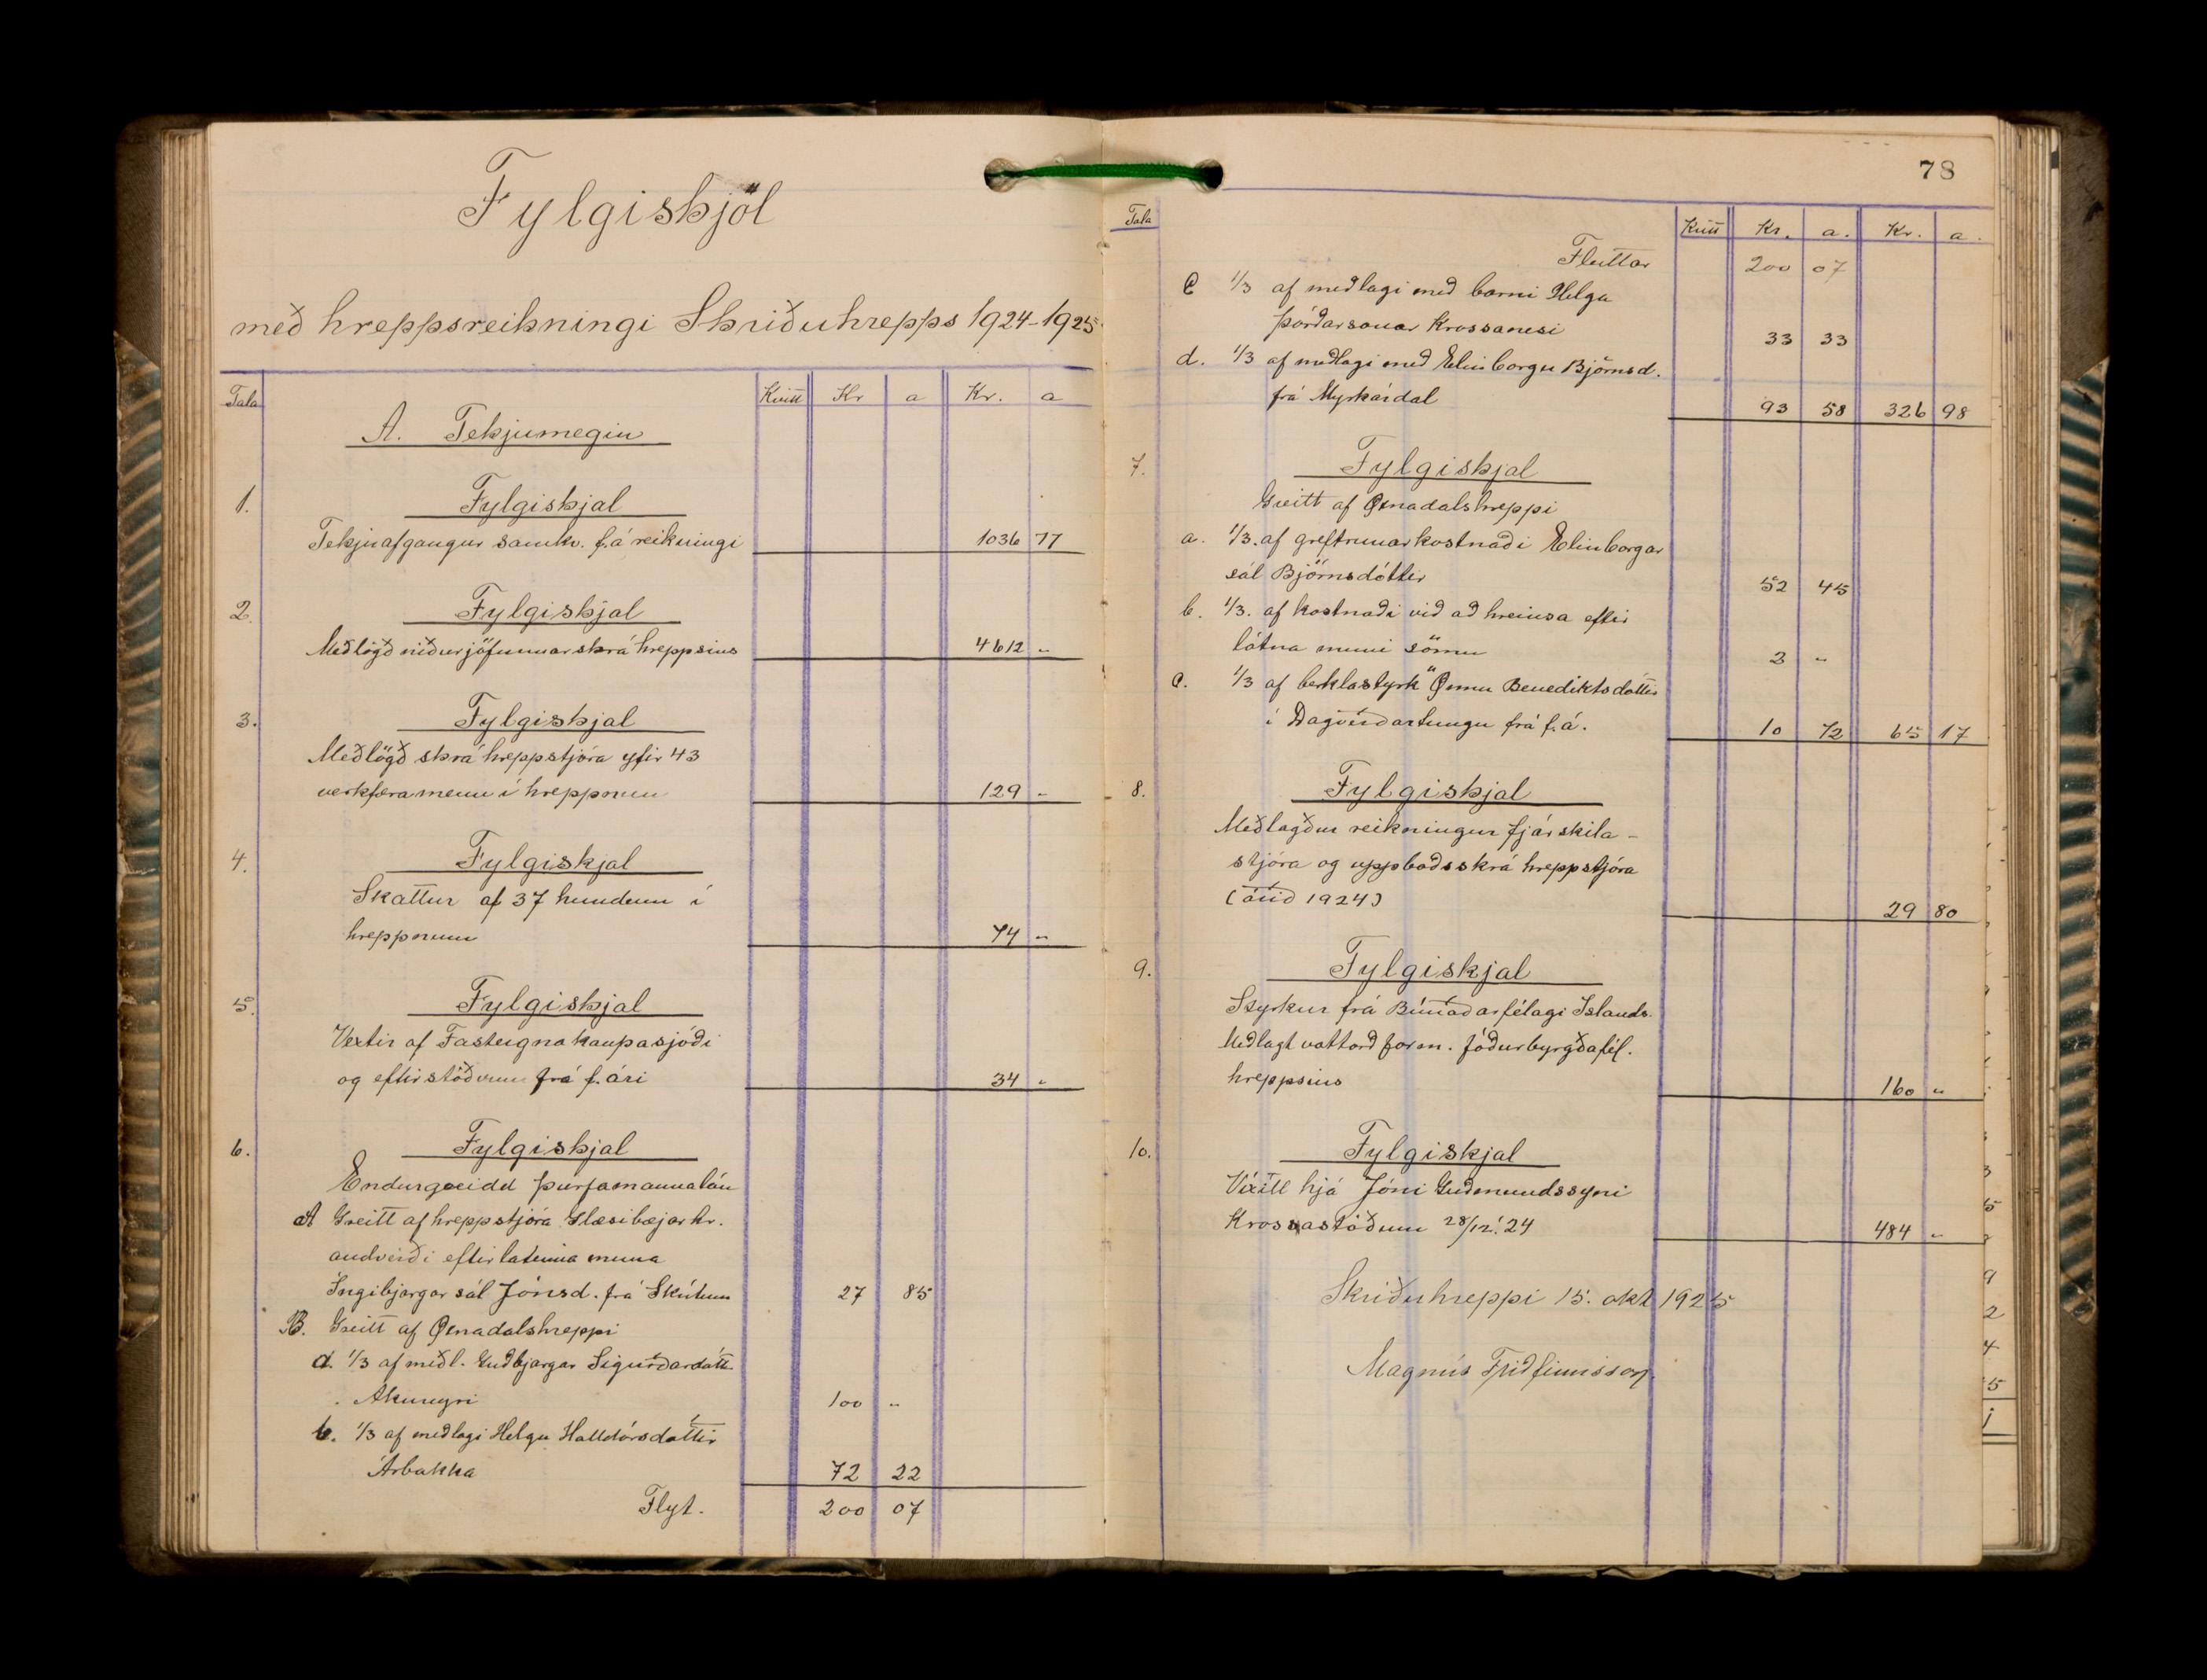 Fylgiskjöl
með hreppsreikningi Skriðuhrepps 1924-1925
Tala Kvitt Kr a Kr. a
A. Tekjumegin
1. Fylgiskjal
Tekjuafgangur samkv. f.á reikningi 1036 77
2. Fylgiskjal
Meðlögð niðurjöfnunarskrá hreppsins 4612 "
3. Fylgiskjal
Meðlögð skrá hreppstjóra yfir 43
verkfæra menn í hreppnum 129 "
4. Fylgiskjal
Skattur af 37 hundum í
hreppnum 74 "
5. Fylgiskjal
Vextir af Fasteignakaupasjóði
og eftirstöðvum frá f. ári 34 "
6. Fylgiskjal
Endurgreidd þurfamannalán
A Greitt af hreppstjóra Glæsibæjarhr.
andvirði eftirlatinna muna
Ingibjargar sál Jónsd. frá Skútum 27 85
B. Greitt af Öxnadalshreppi
a. 1/3 af meðl. Guðbjargar Sigurðardótt.
Akureyri 100 "
b. 1/3 af meðlagi Helgu Halldórsdóttir
Árbakka 72 22
Flyt. 200 07
78
Tala Kvitt Kr. a. Kr. a.
Fluttar 200 07
C 1/3 af meðlagi með barni Helga
Þórðarsonar Krossanesi 33 33
d. 1/3 af meðlagi með Elinborgu Björnsd.
frá Myrkárdal 93 58 326 98
7. Fylgiskjal
Greitt af Öxnadalshreppi
a. 1/3. af greftrunarkostnaði Elinborgar
sál Björnsdóttir 52 45
b. 1/3. af kostnaði við að hreinsa eftir
látna muni sömu 2 "
c. 1/3 af berklastyrk Önnu Benediktsdóttir
í Dagverðartungu frá f.á. 10 72 65 17
8. Fylgiskjal
Meðlagður reikningur fjárskila-
stjóra og uppboðsskrá hreppstjóra
(árið 1924) 29 80
9. Fylgiskjal
Styrkur frá Búnaðarfélagi Islands.
Meðlagt vottorð form. fóðurbyrgðafél.
hreppsins 160 "
10. Fylgiskjal
Víxill hjá Jóni Guðmundssyni
Krossastöðum 28/12.'24 484 "
Skriðuhreppi 15. okt 1925
Magnús Friðfinnsson.